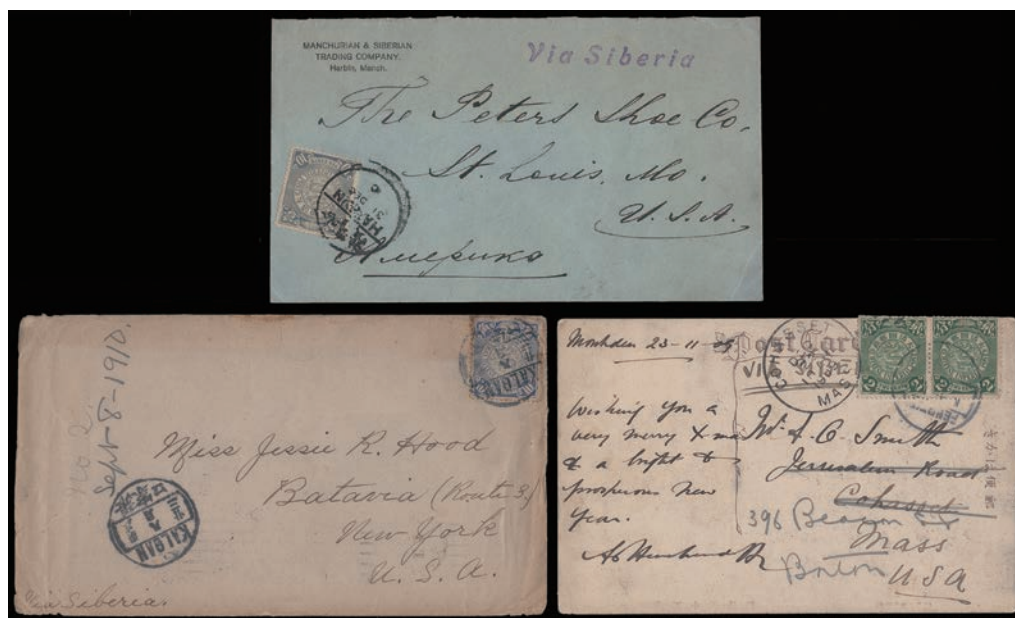 MANCHURIAN & SIBERIAN
TRADING COMPANY.
Harbin, Manch.
Via Siberia
The Peters Shoe Co.
St. Louis, Mo.
U.S.A.
HARBIN
31 DEC
Америка
No 2.
Sept-8-1910.
KALGAN
Miss Jessie R. Hood
Batavia (Route 3.)
New York
U. S. A.
KALGAN
Via Siberia.
Moukden 23-11-05
Post Card
VIA SIBERIA
COHASSET
MASS
2
2
Wishing you a
very merry Xmas
& a bright &
prosperous New
Year.
Mr A. C. Smith
Jerusalem Road
Cohasset
396 Beacon St
Mass
Boston
USA